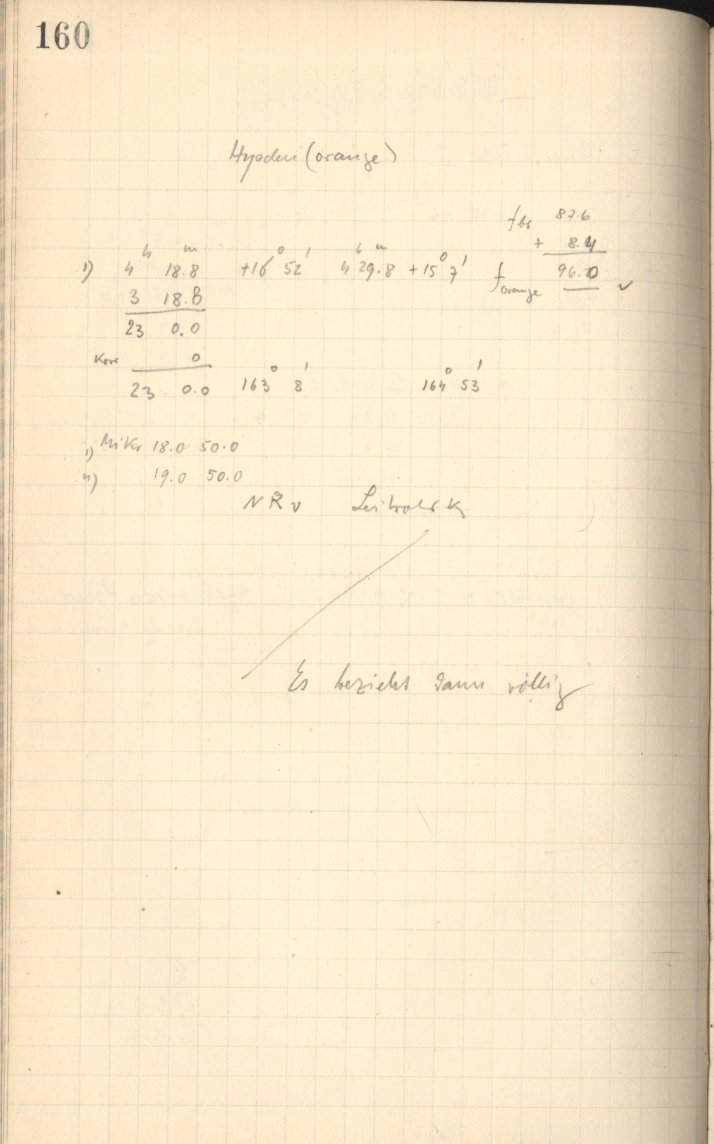 160
Hyaden (orange)
f bl 87.6
+ 8.4
f orange 96.0 ✓
1) 4h 18.8m +16° 52' 4h 29.8m +15° 7'
3 18.8
23 0.0
Korr 0
23 0.0 163° 8' 164° 53'
1) Mikr 18.0 50.0
2) 19.0 50.0
N R v
Es bezieht dann völlig